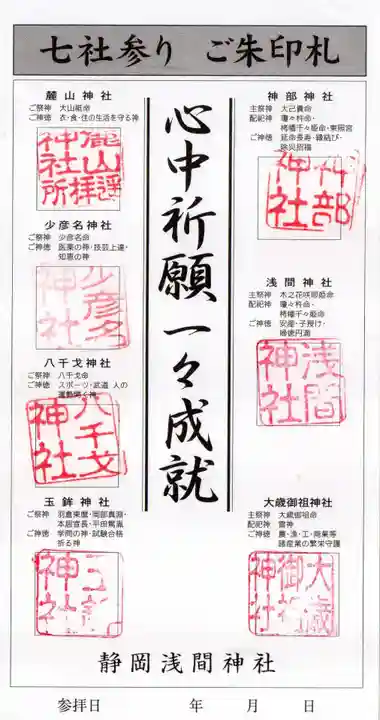 七社参り ご朱印札
心中祈願一々成就
神部神社
主祭神 大己貴命
配祀神 瓊々杵命・
栲幡千々姫命・東照宮
ご神徳 延命長寿・縁結び・
除災招福
神部
神社
浅間神社
主祭神 木之花咲耶姫命
配祀神 瓊々杵命・
栲幡千々姫命
ご神徳 安産・子授け・
婦徳円満
浅間
神社
大歳御祖神社
主祭神 大歳御祖命
配祀神 雷神
ご神徳 農・漁・工・商業等
諸産業の繁栄守護
大歳
御祖
神社
麓山神社
ご祭神 大山祇命
ご神徳 衣・食・住の生活を守る神
麓山
神社
遥拝
所
少彦名神社
ご祭神 少彦名命
ご神徳 医薬の神・技芸上達・
知恵の神
少彦名
神社
八千戈神社
ご祭神 八千戈命
ご神徳 スポーツ・武道 人の
運動開く神
八千戈
神社
玉鉾神社
ご祭神 羽倉東麿・岡部真淵・
本居宣長・平田篤胤
ご神徳 学問の神・試験合格
祈る神
玉鉾
神社
静岡浅間神社
参拝日 年 月 日